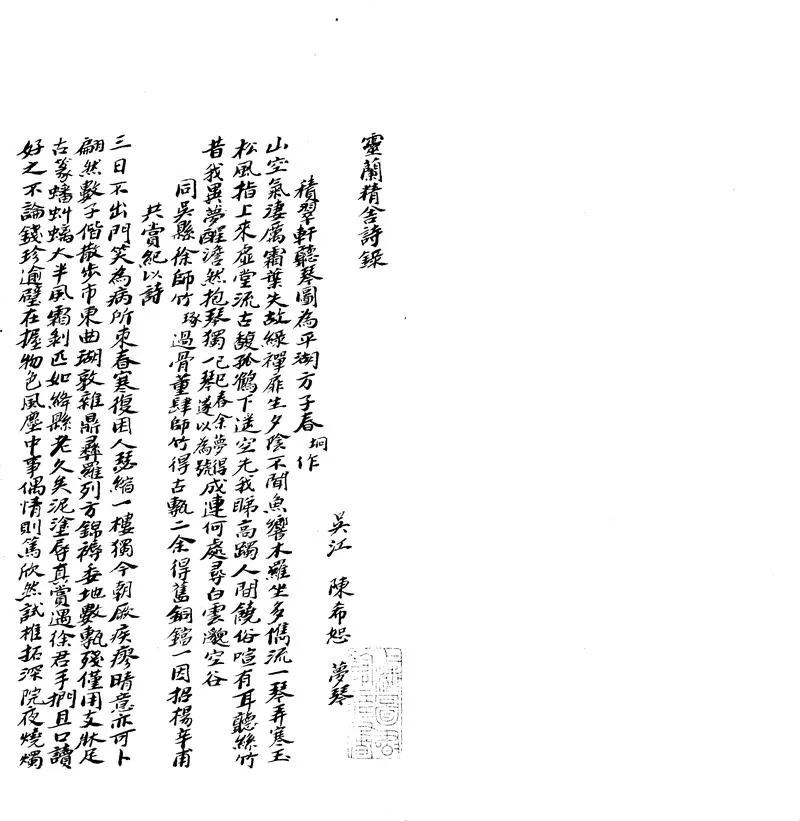 靈蘭精舍詩錄
吳江 陳希恕 夢琴
積翠軒聽琴圖為平湖方子春坰作
山空氣淒厲霜葉失故綠禪扉生夕陰不聞魚響木羅坐多儁流一琴弄寒玉
松風指上來虛堂流古馥孤鶴下遙空先我睇高躅人間饒俗喧有耳聽絲竹
昔我異夢醒澹然抱琴獨已巳春余夢得一琴遂以為號成連何處尋白雲邈空谷
同吳縣徐師竹琢過骨董肆師竹得古甎二余得舊銅鐺一因招楊辛甫
共賞紀以詩
三日不出門笑為病所束春寒復困人瑟縮一樓獨今朝厥疾瘳晴意亦可卜
翩然數子偕散步市東曲瑚敦雜鼎彝羅列方錦褥委地數甎殘僅用支牀足
古篆蟠虯螭大半風霜剝匹如絳縣老久矣泥塗辱真賞遇徐君手捫且口讀
好之不論錢珍逾璧在握物色風塵中事偶情則篤欣然試椎拓深院夜燒燭